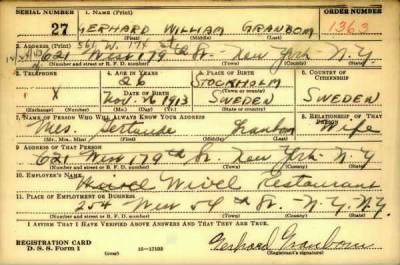 SERIAL NUMBER 1. NAME (Print) ORDER NUMBER
27 GERHARD WILLIAM GRANBOM 1363
(First) (Middle) (Last)
561 W. 179
2. ADDRESS (Print)
621 West 179th St. New York N.Y.
(Number and street or R. F. D. number) (Town) (County) (State)
3. TELEPHONE 4. AGE IN YEARS 5. PLACE OF BIRTH 6. COUNTRY OF CITIZENSHIP
X 26 STOCKHOLM
DATE OF BIRTH
Nov. 1913 SWEDEN SWEDEN
(Exchange) (Number) (Mo.) (Day) (Yr.) (State or country)
7. NAME OF PERSON WHO WILL ALWAYS KNOW YOUR ADDRESS 8. RELATIONSHIP OF THAT PERSON
Mrs. Gertrude Granbom Wife
(Mr., Mrs., Miss) (First) (Middle) (Last)
9. ADDRESS OF THAT PERSON
621 West 179th St. New York N.Y.
(Number and street or R. F. D. number) (Town) (County) (State)
10. EMPLOYER'S NAME
Wivel Restaurant
11. PLACE OF EMPLOYMENT OR BUSINESS
254 West 54th St. N.Y. N.Y.
(Number and street or R. F. D. number) (Town) (County) (State)
I AFFIRM THAT I HAVE VERIFIED ABOVE ANSWERS AND THAT THEY ARE TRUE.
REGISTRATION CARD
D. S. S. Form 1 (over) 16—17105 Gerhard Granbom
(Registrant's signature)